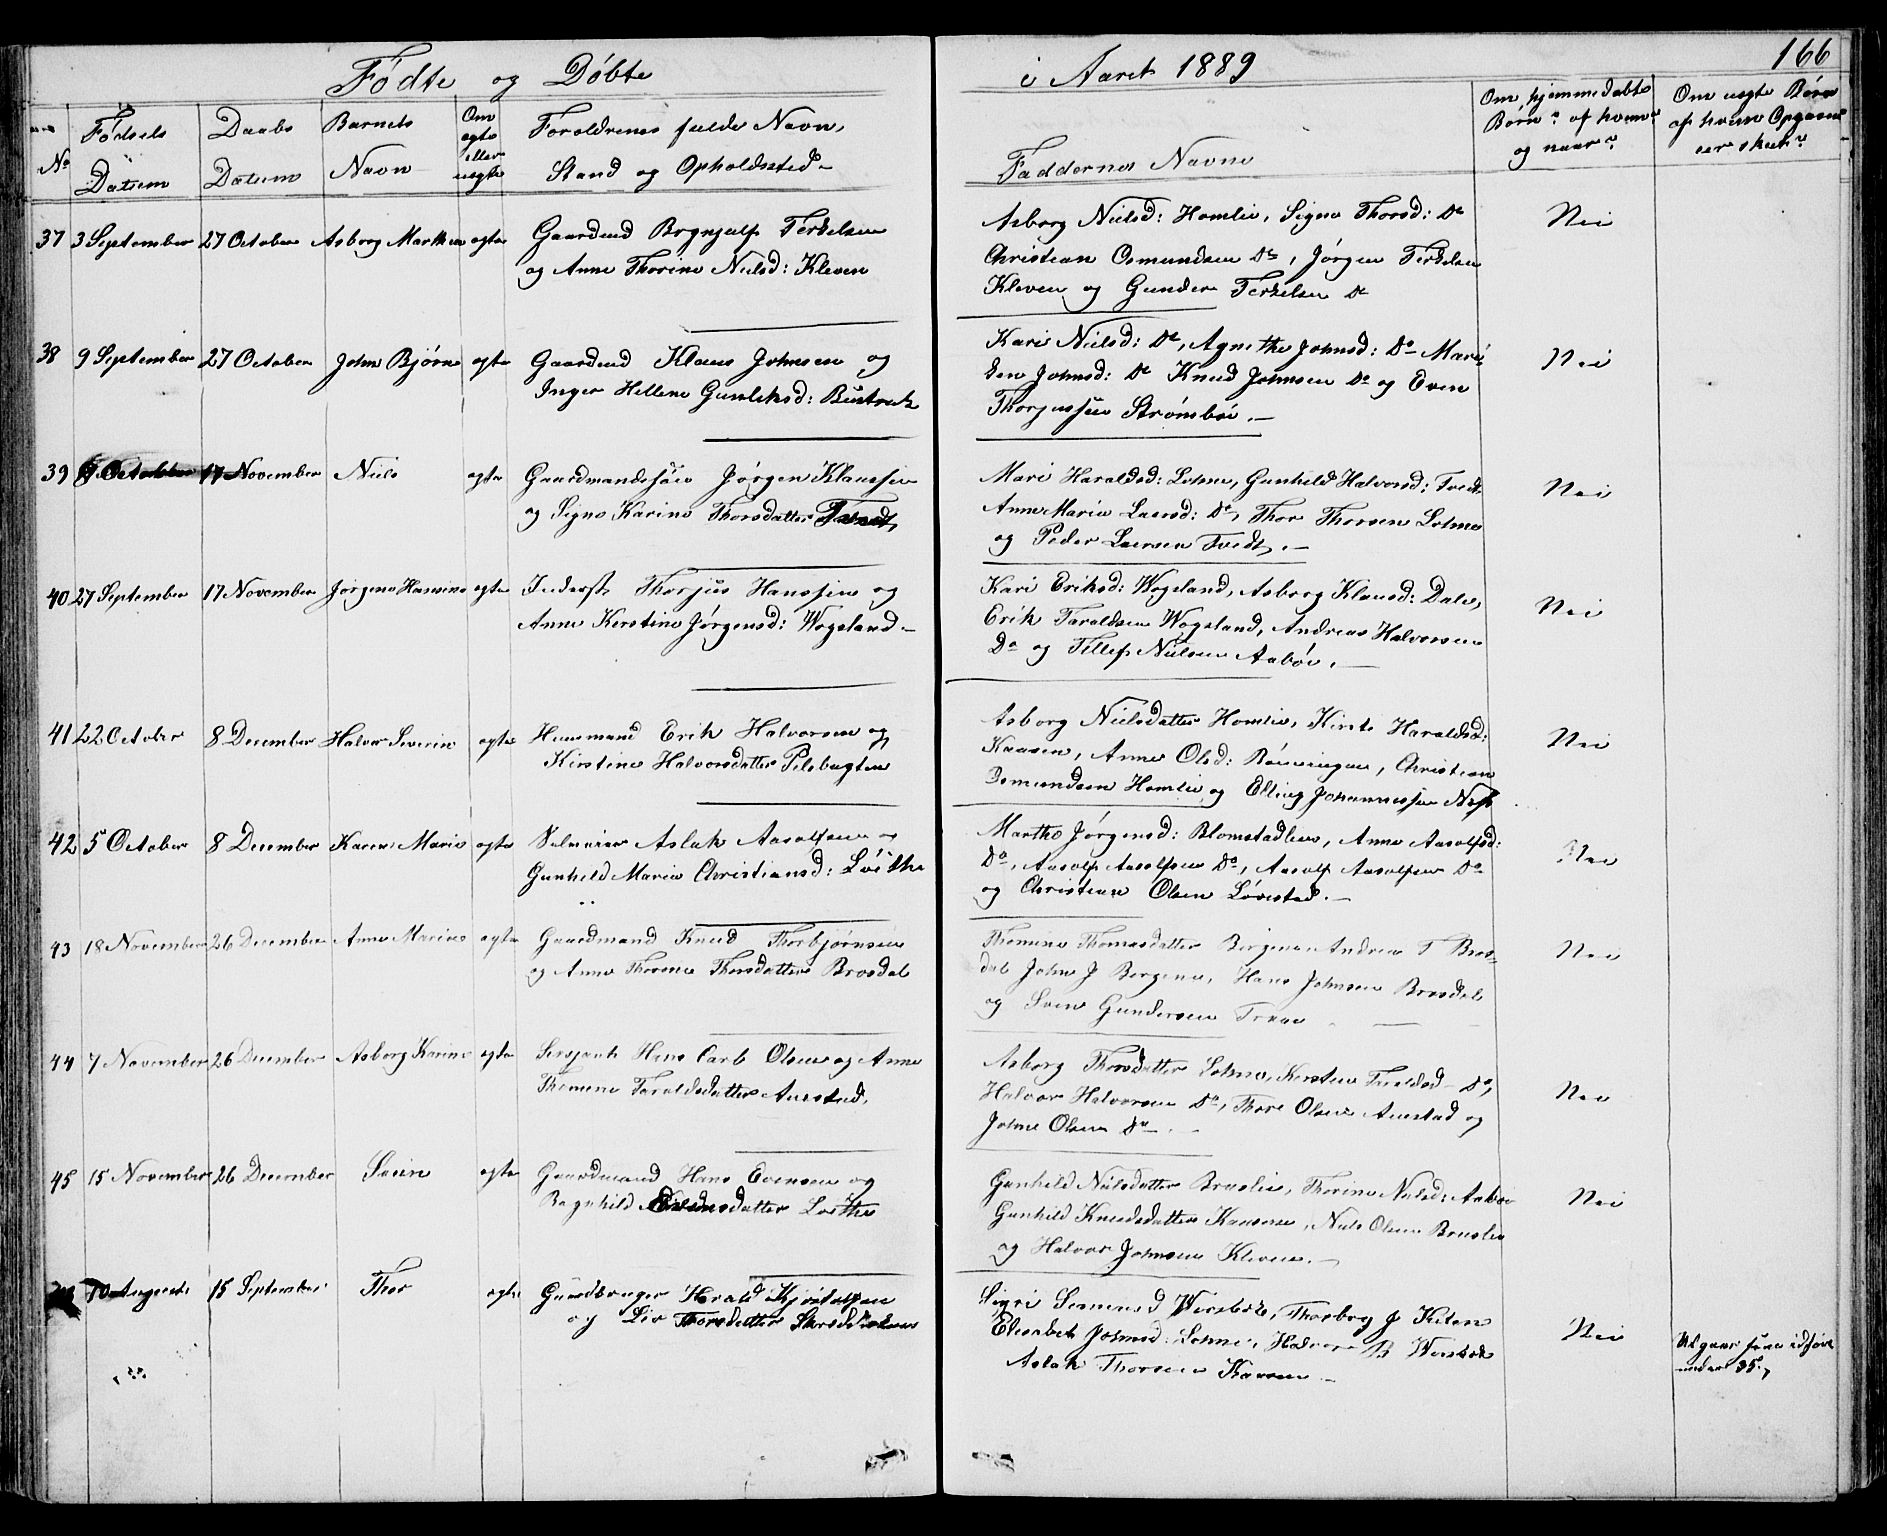 Fødte og Døbte i Aaret 1889 166
No Fødsels Datum
Daabs Datum
Barnets Navn
Om ægte eller uægte
Forældrenes fulde Navn,
Stand og Opholdssted
Faddernes Navne
Om hjemmedøbte
Børn? af hvem?
og naar?
Om uægte Børn
af hvem Opgaven
er skeet?
37 3 September 27 October Asborg Marthea ægte Gaardmd Brynjulf Terkelsen
og Anne Thorine Nielsd: Kleven
Asborg Nielsd: Homlie, Signe Thorsd: Do
Christian Osmundsen Do, Jørgen Terkelsen
Kleven og Gunder Terkelsen Do
Nei
38 9 September 27 October John Bjørne ægte Gaardmd Klaus Johnsen og
Inger Hellene Gunleksd: Bustrak
Kari Nielsd: Do, Agnethe Johnsd: Do Mari-
den Johnsd: Do Knud Johnsen Do og Even
Thorjussen Strømbøi.
Nei
39 October 17 November Niels ægte Gaardmandssøn Jørgen Klaussen
og Signe Karine Thorsdatter Tvedt,
Mari Haraldsd: Lohne, Gunhild Halvorsd: Tvedt
Anne Marie Laersd: Do, Thor Thorsen Lohne
og Peder Laersen Tvedt.
Nei
40 27 September 17 November Jørgene Hansine ægte Inderst, Thorjus Hanssen og
Anne Kerstine Jørgensd: Wogsland
Kari Eriksd: Wogsland, Asborg Klausd: Dale,
Erik Taraldsen Wogsland, Andreas Halvorsen
Do og Tellef Nielsen Aabøe.
Nei
41 22 October 8 December Halvor Severin ægte Huusmand Erik Halvorsen og
Kirstine Halvorsdatter Pilebugten
Asborg Nielsdatter Homlie, Kirste Haraldsd:
Kaasen, Anne Olsd: Rønningen, Christian
Osmundsen Homlie og Elling Johannessen Næs
Nei
42 5 October 8 December Karen Marie ægte Selveier Aslak Aasolfsen og
Gunhild Marie Christiansd: Løithe
Marthe Jørgensd: Blomstadlien, Anne Aasolfsd:
Do, Aasolf Aasolfsen Do, Aasolf Aasolfsen Do
og Christian Olsen Lørestad.
Nei
43 18 November 26 December Anne Marine ægte Gaardmand Knud Thorbjørnsen
og Anne Thorene Thorsdatter Brosdal
Thomine Thomasdatter Bergene Andrea T Bros-
dal John J Bergene, Hans Johnsen Brosdal
og Sven Gundersen Traae
Nei
44 7 November 26 December Asborg Karine ægte Sersjant Hans Carl Olsen og Anne
Thomine Taraldsdatter Aurstad,
Asborg Thorsdatter Lohne, Kersten Do,
Halvor Halvorsen Do, Thore Olsen Aurstad og
John Olsen Do
Nei
45 15 November 26 December Svein ægte Gaardmand Hans Evensen og
Ragnhild datter Løithe
Gunhild Nielsdatter Bruslie, Thorine Nielsd: Aabøe
Gunhild Knudsdatter Kaasene, Niels Olsen Bruslie
og Halvor Johnsen Kleven.
Nei
10 August 15 September Thor ægte Gaardbruger Harald Kjøstolfsen
og Liv Thorsdatter
Sigri Wirsbok, Thorborg J Kiten
Elisabet Johnsd: Lohne, Halvor B Wirsbok
Aslak Thorsen Kaasen
Nei
Udgaar indført
under 35.